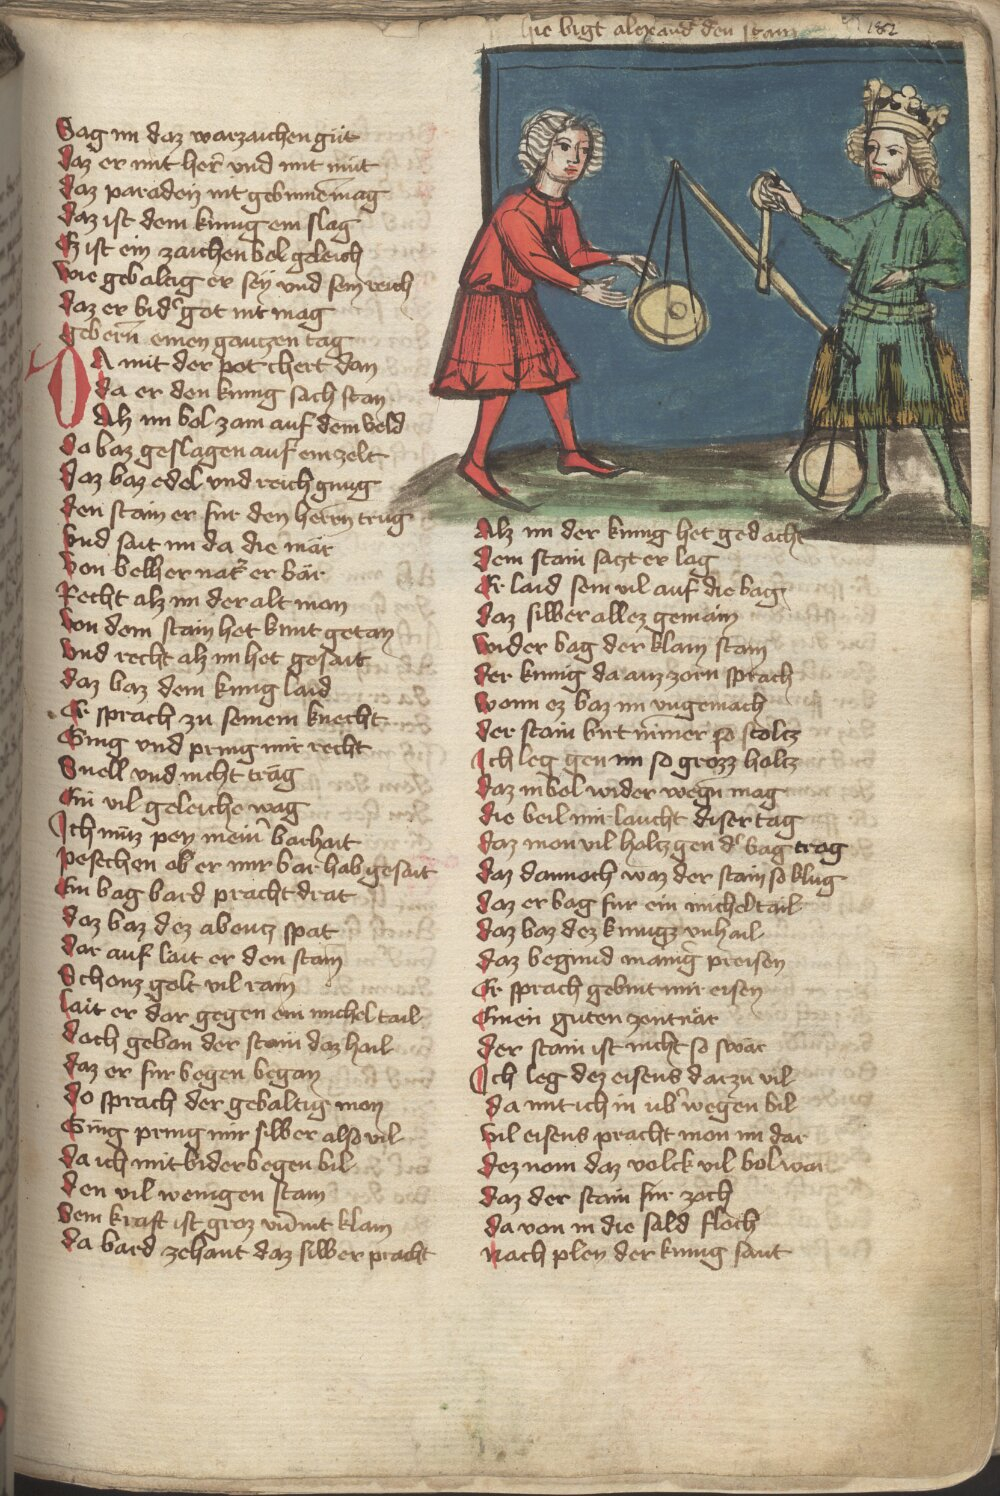 hie wigt alexand' den stain
182
Sag im daz warzaichen güt
Daz er mit her vnd mit müt
Daz paradeiz nit gebinnen mag
Daz ist dem kunig ein slag
Ez ist ein zaichen bol geleich
Wie gebaltig er seÿ vnd sein reich
Daz er bid' got nit mag
gebern einen gantzen tag
DA mit der pot chert dan
Da er den kunig sach stan
Alz im bol zam auf dem veld
Do baz geslagen auf ein zelt
Daz baz edel vnd reich gnug
Den stain er fur den herrn trug
Vnd sait im da die mär
Von belher natr er bär
Recht alz im der alt man
Von dem stain het kunt getan
Vnd recht alz im het gesait
Daz baz dem kunig laid
Er sprach zu seinem knecht
Ging vnd pring mir recht
Snell vnd nicht träg
Ein vil geleiche wag
Ich müz peÿ meiner barhait
Pesechen ob er mir bar hab gesait
Ein bag bard pracht drat
Daz baz dez abentz spat
Dar auf lait er den stain
Schonz golt vil rain
Lait er dar gegen ein michel tail
Doch geban der stain daz hail
Daz er fur begen began
Do sprach der gebaltig man
Ging pring mir silber also vil
Da ich mit biderbegen bil
Den vil wenigen stain
Sein kraft ist groz vnd nit klain
Da bard zehant daz silber pracht
Alz im der kunig het gedacht
Dem stain satzt er lag
Er laid sein vil auf die bag
Daz silber allez gemain
Wider bag der klain stain
Der kunig da auz zorn sprach
Wann ez baz im vngemach
Der stain birt nimer so stoltz
Ich leg gen im so grozz holtz
Daz in bol wider wegn mag
Die beil mir laucht diser tag
Daz man vil holtz gen d' bag trag
Daz dannoch waz der stain so klug
Daz er bag fur ein michel tail
Daz baz dez kunigz vnhail
Daz begund manig preisen
Er sprach gebint mir eisen
Einen guten zentnär
Der stain ist nicht so swär
Ich leg dez eisens darzu vil
Da mit ich in vb' wegen bil
Vil eisens pracht man im dar
Dez nom daz volck vil bol war
Daz der stain fur zoch
Da von in die säld floch
Nach pleÿ der kunig sant